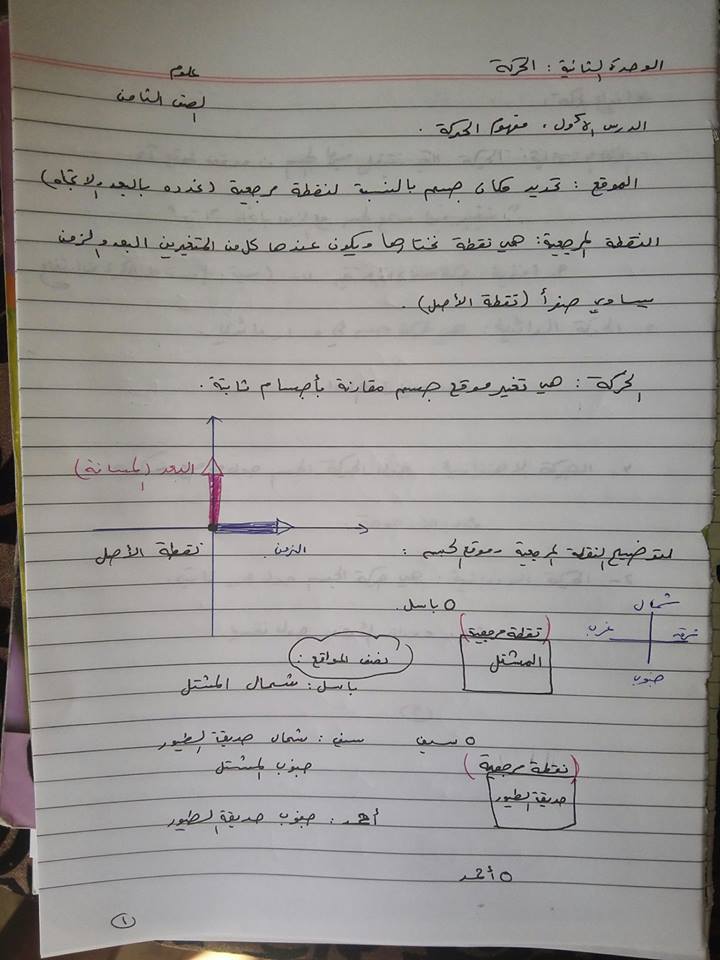 الوحدة الثانية : الحركة
علوم
الصف الثامن
الدرس الأول : مفهوم الحركة .
الموقع : تحديد مكان جسم بالنسبة لنقطة مرجعية (نحدده بالبعد والاتجاه)
النقطة المرجعية : هي نقطة نختارها ويكون عندها كل من المتغيرين البعد والزمن
يساوي صفراً (نقطة الأصل) .
الحركة : هي تغير موقع جسم مقارنة بأجسام ثابتة .
البعد (المسافة)
الزمن
نقطة الأصل
لتوضيح النقطة المرجعية وموقع الجسم :
شمال
شرق
غرب
جنوب
باسل
(نقطة مرجعية)
المشتل
نصف المواقع :
باسل : شمال المشتل
سيف
سيف : شمال حديقة الطيور
جنوب المشتل
(نقطة مرجعية)
حديقة الطيور
أحمد : جنوب حديقة الطيور
أحمد
١